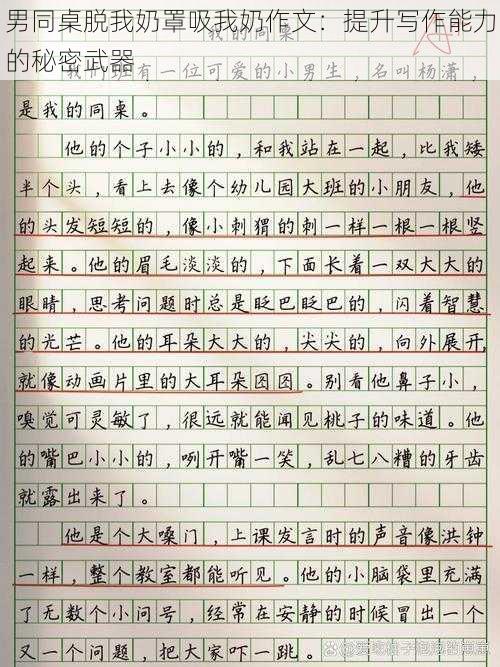 我的同桌
我们班有一位可爱的小男生，名叫杨潇，
是我的同桌。
他的个子小小的，和我站在一起，比我矮
半个头，看上去像个幼儿园大班的小朋友，他
的头发短短的，像小刺猬的刺一样一根一根竖
起来。他的眉毛淡淡的，下面长着一双大大的
眼睛，思考问题时总是眨巴眨巴的，闪着智慧
的光芒。他的耳朵大大的，尖尖的，向外展开，
就像动画片里的大耳朵图图。别看他鼻子小，
嗅觉可灵敏了，很远就能闻见桃子的味道。他
的嘴巴小小的，咧开嘴一笑，乱七八糟的牙齿
就露出来了。
他是个大嗓门，上课发言时的声音像洪钟
一样，整个教室都能听见。他的小脑袋里充满
了无数个小问号，经常在安静的时候冒出一个
又一个问题，把大家吓一跳。